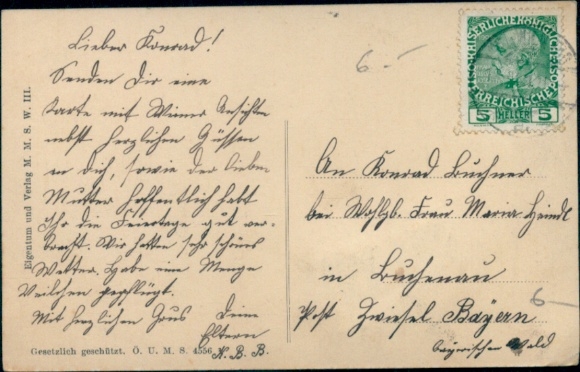 Lieber Konrad!
Senden Dir eine
Karte mit Wiener Ansichten
nebst herzlichen Güssen
an dich, sowie der lieben
Mutter hoffentlich habt
Ihr die Feiertage gut ver-
bracht. Wir hatten sehr schönes
Wetter. Habe eine Menge
Veilchen gepflügt.
Mit herzlichen Grus Deine
Eltern
N. B. B.
Eigentum und Verlag M. M. S. W. III.
Gesetzlich geschützt. Ö. U. M. S. 4556
6.-
KAISERLICHE KÖNIGLICHE
ÖSTERREICHISCHE
5 HELLER 5
An Konrad Buchner
bei Wohlgb. Frau Maria Heindl
in Buchenau
Post Zwiesel Bayern
bayrischen Wald
6-